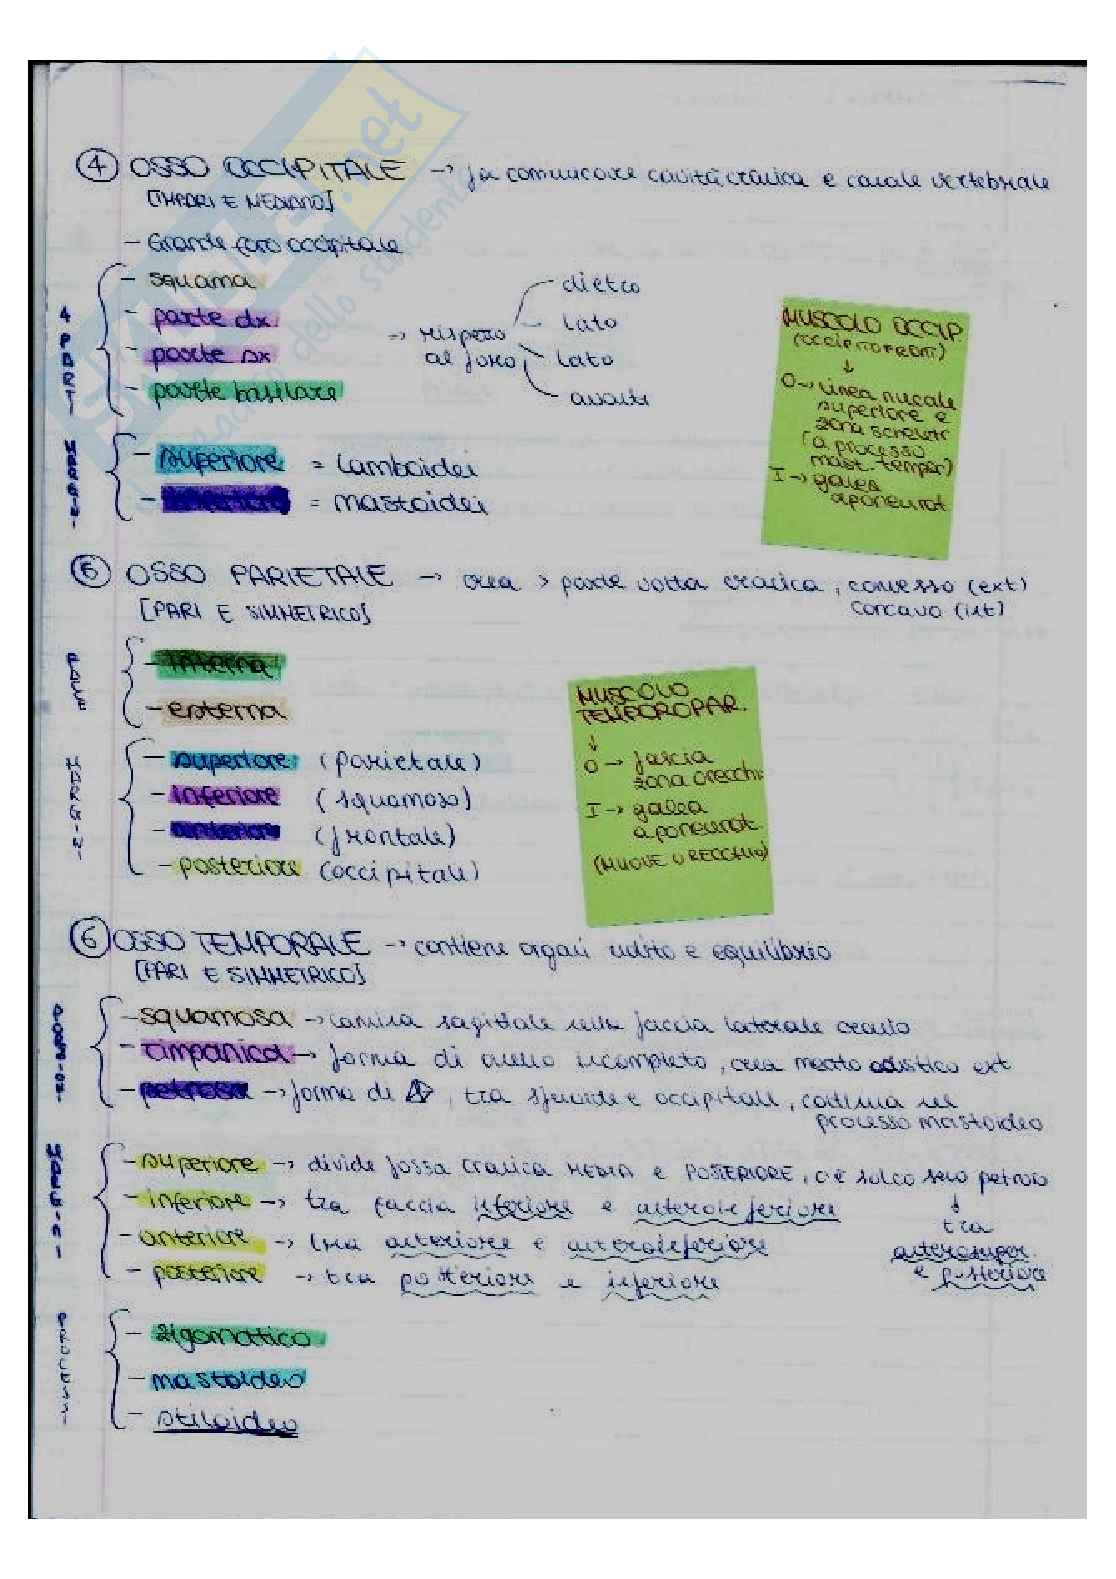 ④ OSSO OCCIPITALE → fa comunicare cavità cranica e canale vertebrale
[IMPARI E MEDIANO]
- Grande foro occipitale
4 PARTI
- squama
- parte dx
- parte sx
- parte basilare
→ rispetto al foro
dietro
lato
lato
avanti
MARGINI
- superiore = lamboidei
- inferiore = mastoidei
MUSCOLO OCCIP.
(OCCIPITOFRONT)
↓
O → linea nucale
superiore e
zona
(a processo
mast. tempor)
I → galea
aponeurot.
⑤ OSSO PARIETALE → crea > parte volta cranica, convesso (ext)
concavo (int)
[PARI E SIMMETRICO]
FACCE
- interna
- esterna
MARGINI
- superiore (parietale)
- inferiore (squamoso)
- anteriore (frontale)
- posteriore (occipitale)
MUSCOLO
TEMPOROPAR.
↓
O → fascia
zona orecchi.
I → galea
aponeurot.
(MUOVE ORECCHIO)
⑥ OSSO TEMPORALE → contiene organi udito e equilibrio
[PARI E SIMMETRICO]
PORZIONI
- squamosa → lamina sagittale nella faccia laterale cranio
- timpanica → forma di anello incompleto, crea meato acustico ext
- petrosa → forma di, tra sfenoide e occipitale, continua nel
processo mastoideo
MARGINI
- superiore → divide fossa cranica MEDIA e POSTERIORE, c'è solco seno petroso
- inferiore → tra faccia inferiore e anteroinferiore
- anteriore → tra anteriore e anteroinferiore
- posteriore → tra posteriore e inferiore
↓
tra
anterosuper.
e posteriore
PROCESSI
- zigomatico
- mastoideo
- stiloideo